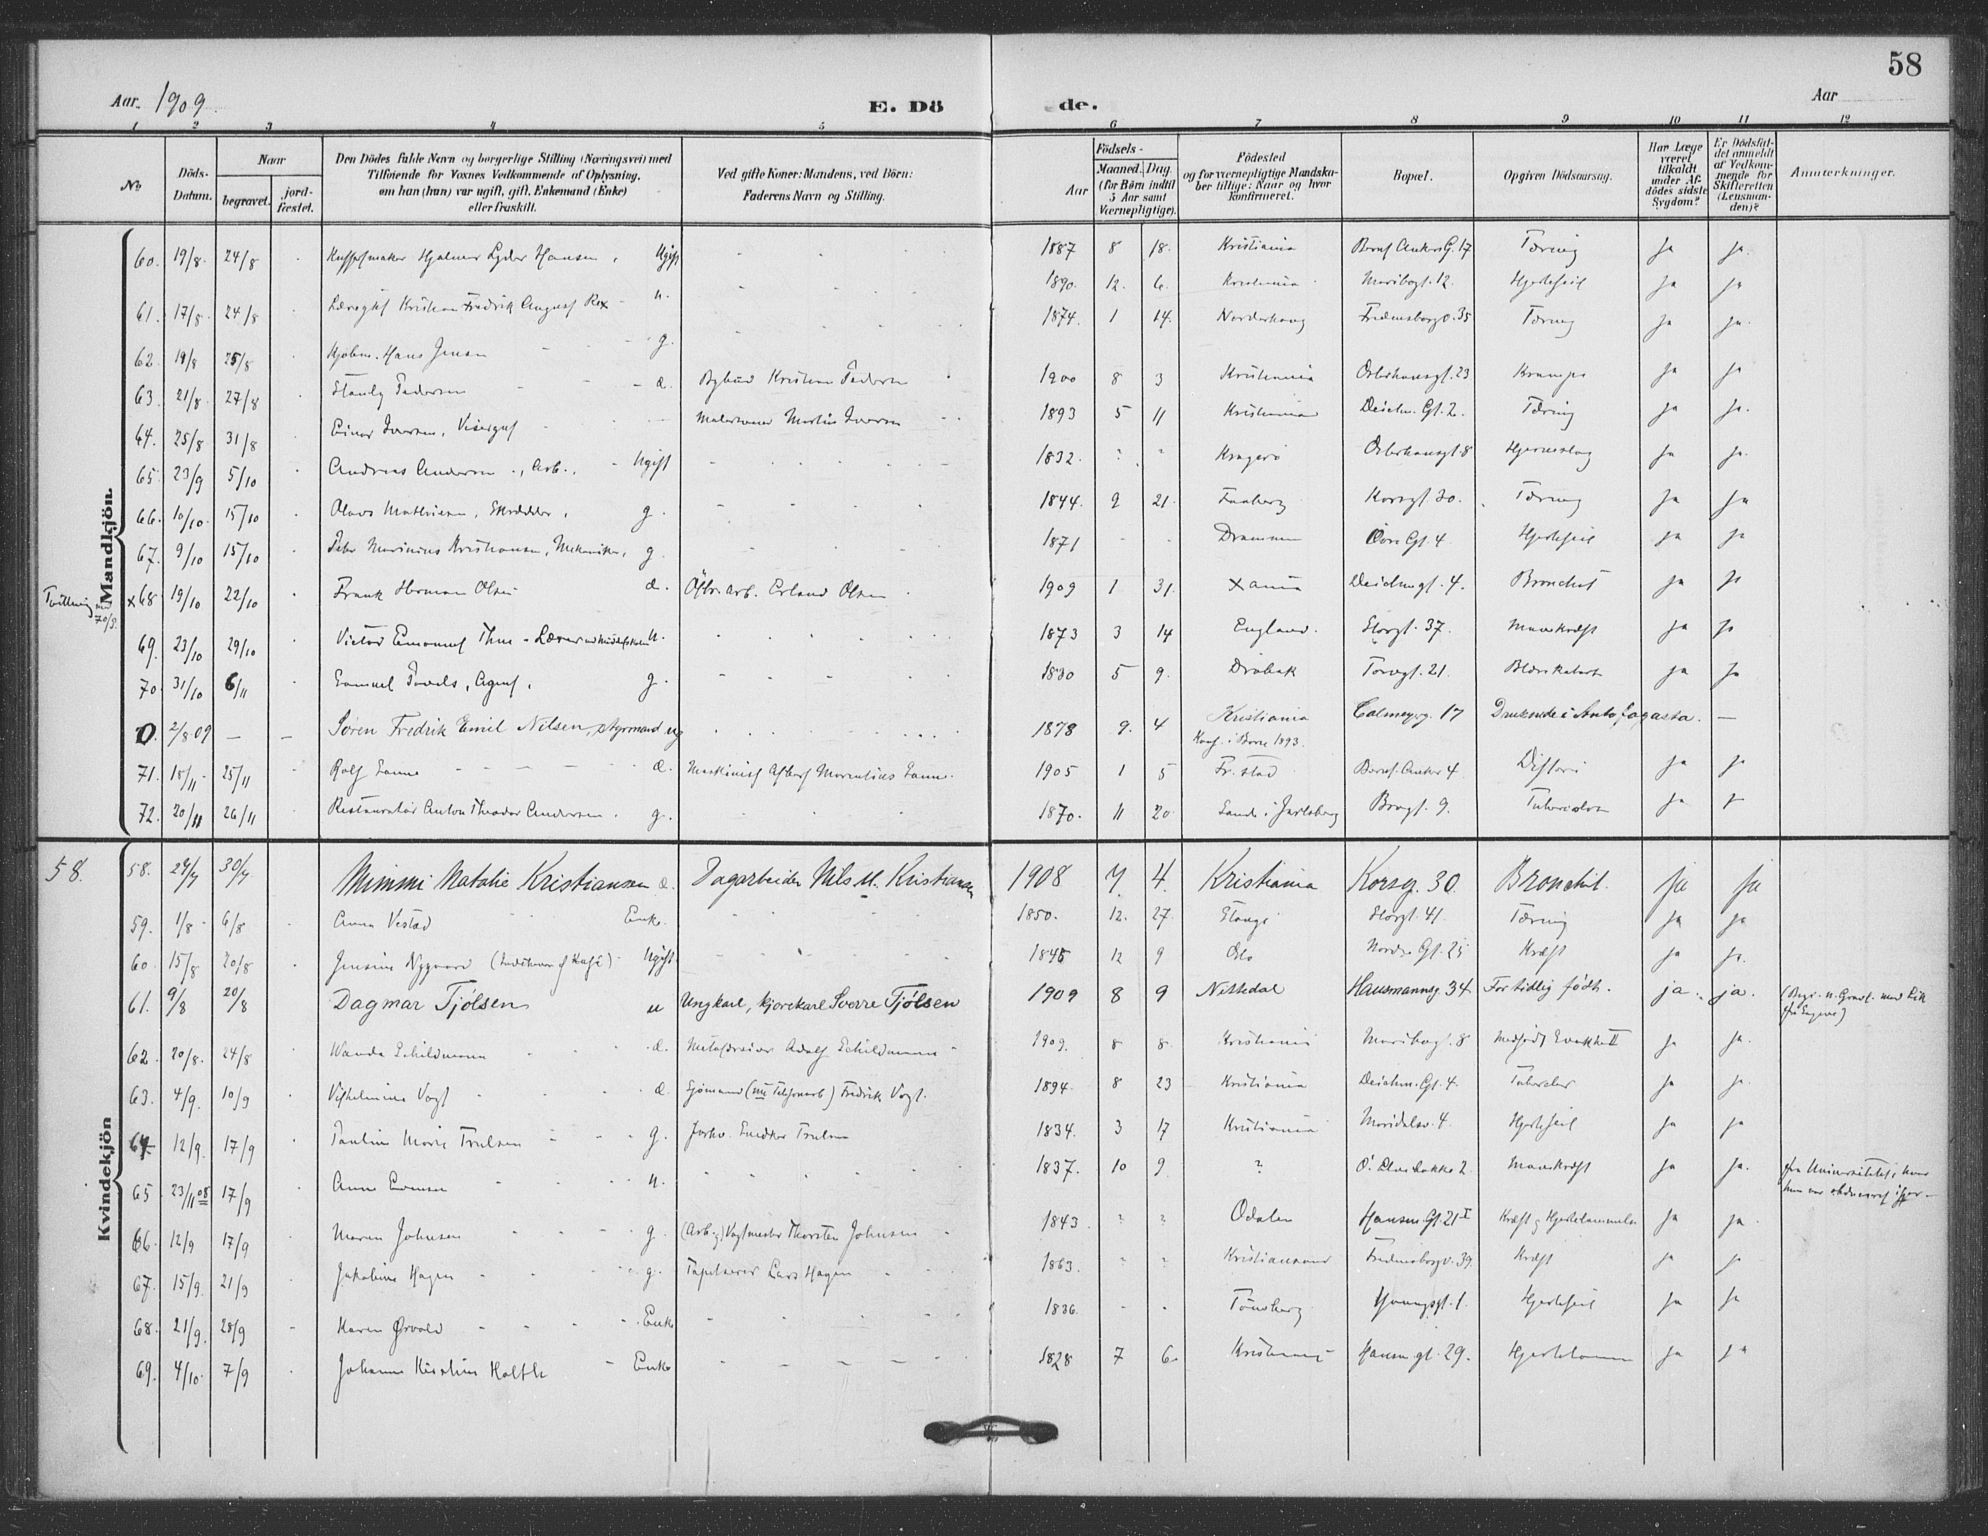 58
Aar 1909. E. Dö
de. Aar
1 2 3 4 5 6 7 8 9 10 11 12
No
Döds-Datum.
Naar
begravet.
jord-fæstet.
Den Dödes fulde Navn og borgerlige Stilling (Næringsvei) med
Tilföiende for Voxnes Vedkommende af Oplysning,
om han (hun) var ugift, gift, Enkemand (Enke)
eller fraskilt.
Ved gifte Koner: Mandens, ved Börn:
Faderens Navn og Stilling.
Födsels-
Aar
Maaned. Dag.
(for Börn indtil
5 Aar samt
Værnepligtige).
Födested
og for værnepligtige Mandska-
ber tillige: Naar og hvor
konfirmeret.
Bopæl.
Opgiven Dödsaarsag.
Har Læge
været
tilkaldt
under Af-
dödes sidste
Sygdom?
Er Dödsfal-
det anmeldt
af Vedkom-
mende for
Skifteretten
(Lensman-
den)?
Anmærkninger.
Mandkjön.
60. 19/8. 24/8 Hjalmar Hansen, Ugift 1887 8 18. Kristiania Bernt Ankers G. 17 Tæring ja ja.
61. 17/8. 24/8 Kristian Fredrik August Rex u. 1890. 12. 6. Kristiania Maribogt. 12. Hjertefeil ja ja
62. 19/8 25/8 Hans Jensen g. 1874. 1 14. Norderhoug Fredensborgv. 35 Tæring ja ja.
63. 21/8. 27/8 Stanly Pedersen d. Bybud Kristian Pedersen 1900 8 3 Kristiania Osterhausgt. 23 Krampe ja ja
64. 25/8 31/8 Einar Iversen, Visergut Martin Iversen 1893 5 11 Kristiania Deichm. Gt. 2. Tæring ja ja.
65. 23/9 5/10 Andreas Andersen, Arb., Ugift 1832. Kragerø Osterhausgt. 8 Hjerneslag ja ja.
66. 10/10. 15/10 Olaus Mathiesen, Skrædder, g. 1844. 9 21. Faaberg Korsgt. 30. Tæring ja ja
67. 9/10 15/10 Peter Marinius Kristiansen, Mekaniker, g. 1871 Drammen Övre Gt. 4. Hjertefeil ja ja
Tvilling
x 68 19/10 22/10 Frank Herman Olsen d. arb. Erland Olsen 1909 1 31. Xania Deichmgt. 4. Bronchit ja ja
69. 23/10 29/10 Victor Emanuel u. 1873 3 14 England. Storgt. 37. Mavekræft ja ja
70. 31/10 6/11 Samuel Povels, Agent, g. 1830 5 9. Drøbak Torvgt. 21. Blærekatarh ja ja
0. 2/8 09 — — Søren Fredrik Emil Nilsen, styrmand ug 1878 9. 4 Kristiania Calmeyersg. 17 Druknede i Antofagasta. —
Konf. i Borre 1893.
71. 25/11 Rolf d. Maskinist 1905 1 5 Fr.stad Bernt Anker 4 Difteri ja ja
72. 20/11 26/11 Restauratør Anton Theodor Andersen. g. 1870. 11 20 Sande i Jarlsberg Brogt. 9. ja
Kvindekjön
58. 58. 30/7 Mimmi Natalie Kristiansen d. Dagarbeider Nils M. Kristiansen 1908 7. 4. Kristiania Korsg. 30. Bronchit. ja ja
59. 1/8 6/8 Anna Vestad Enke. 1850. 12. 27. Stange Storgt. 41. Tæring ja ja
60 15/8 20/8 Jensine Nygaard Ugift. 1845 12 9 Oslo Nordre Gt. 25 Kræft ja ja.
61. 9/8 20/8 Dagmar Tjølsen u Ungkarl, kjørekarl Sverre Tjølsen 1909 8 9 Nittedal Hausmannsg. 34 For tidlig født. ja. ja.
62. 20/8. 24/8 Wanda Schildmann d. Adolf Schildmann 1909. 8 8. Kristiania Maribogt. 8 Medfødt Svakhet ja ja.
63. 4/9. 10/9 Vilhelmine Vogt d. Sjømand Fredrik Vogt. 1894. 8 23 Kristiania Deichm. Gt. 4. ja ja.
64 12/9. 17/9 Pauline Marie Trulsen g. Snedker Trulsen 1834. 3 17 Kristiania Maridalsv. 4. Hjertefeil ja ja
65 23/11 08 17/9 Anne u. 1837. 10 9 ? Mavekræft ja ja. fra Universitetet, hvor
66. 12/9 17/9 Maren Johnsen g. Thorsten Johnsen 1843 ? ? Odalen Hausm. Gt. 21 I Kræft og Hjertelammelse ja ja
67. 15/9. 21/9 Jakobine Hagen g. Tapetserer Lars Hagen 1863. Kristianssund Fredensborgv. 39. Kræft ja ja
68. 21/9. 28/9 Karen Ørvold Enke 1836. Tønsberg Youngsgt. 1. Hjertefeil ja ja
69. 4/10. 7/9 Johanne Kirstine Holth Enke 1828 7 6. Kristiania Hausm. gt. 29. ja ja